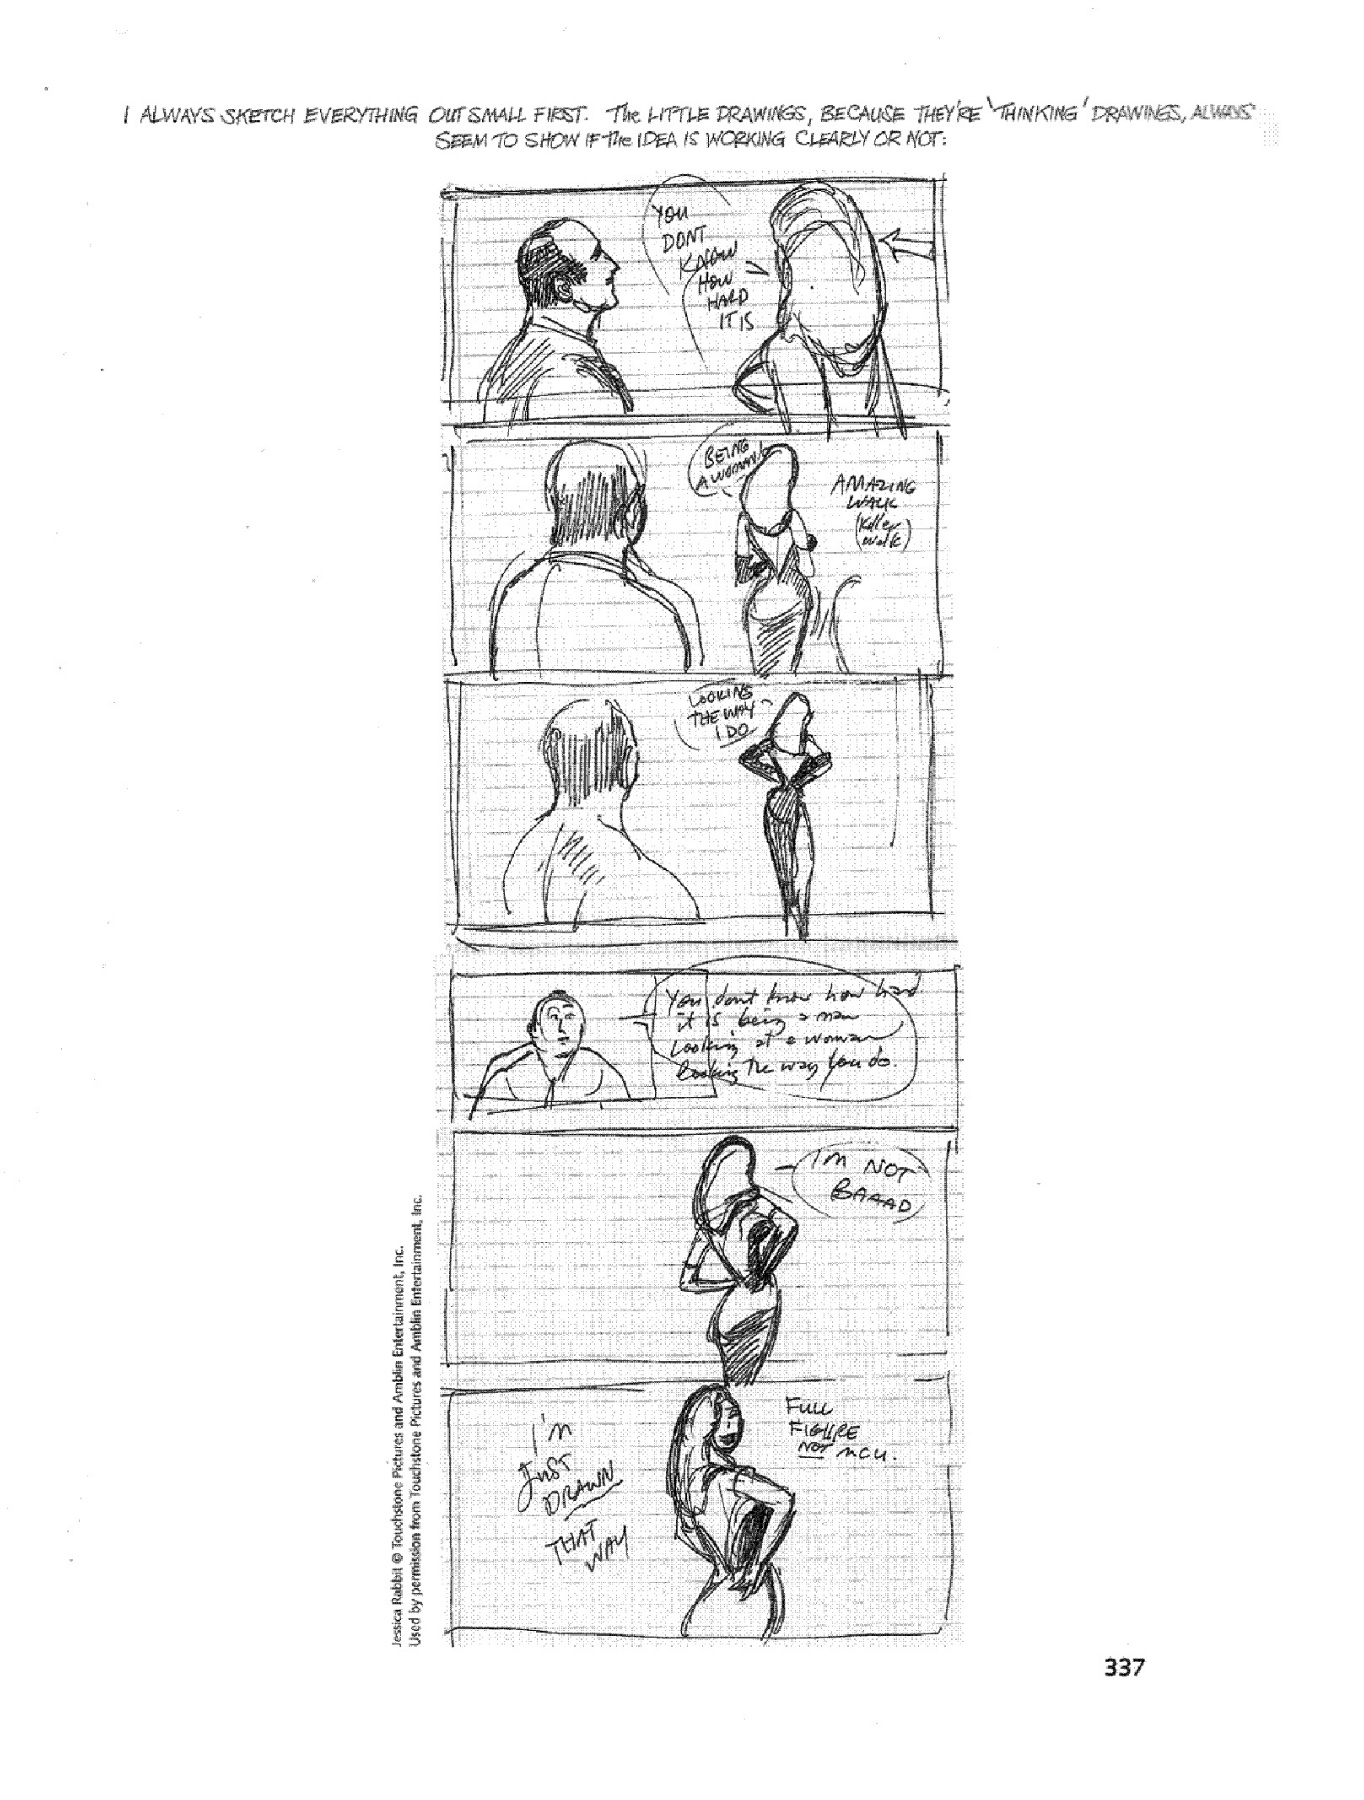 I ALWAYS SKETCH EVERYTHING OUT SMALL FIRST. The LITTLE DRAWINGS, BECAUSE THEY'RE 'THINKING' DRAWINGS, ALWAYS
SEEM TO SHOW IF The IDEA IS WORKING CLEARLY OR NOT:
YOU
DONT
KNOW
HOW
HARD
IT IS
BEING
A WOMAN
AMAZING
WALK
(Killer
walk)
LOOKING
THE WAY
I DO
You dont know how hard
it is being a man
Looking at a woman
looking the way you do.
I'M NOT
BAAAD
I'M
JUST
DRAWN
THAT
WAY
FULL
FIGURE
NOT MCU.
Jessica Rabbit © Touchstone Pictures and Amblin Entertainment, Inc.
Used by permission from Touchstone Pictures and Amblin Entertainment, Inc.
337